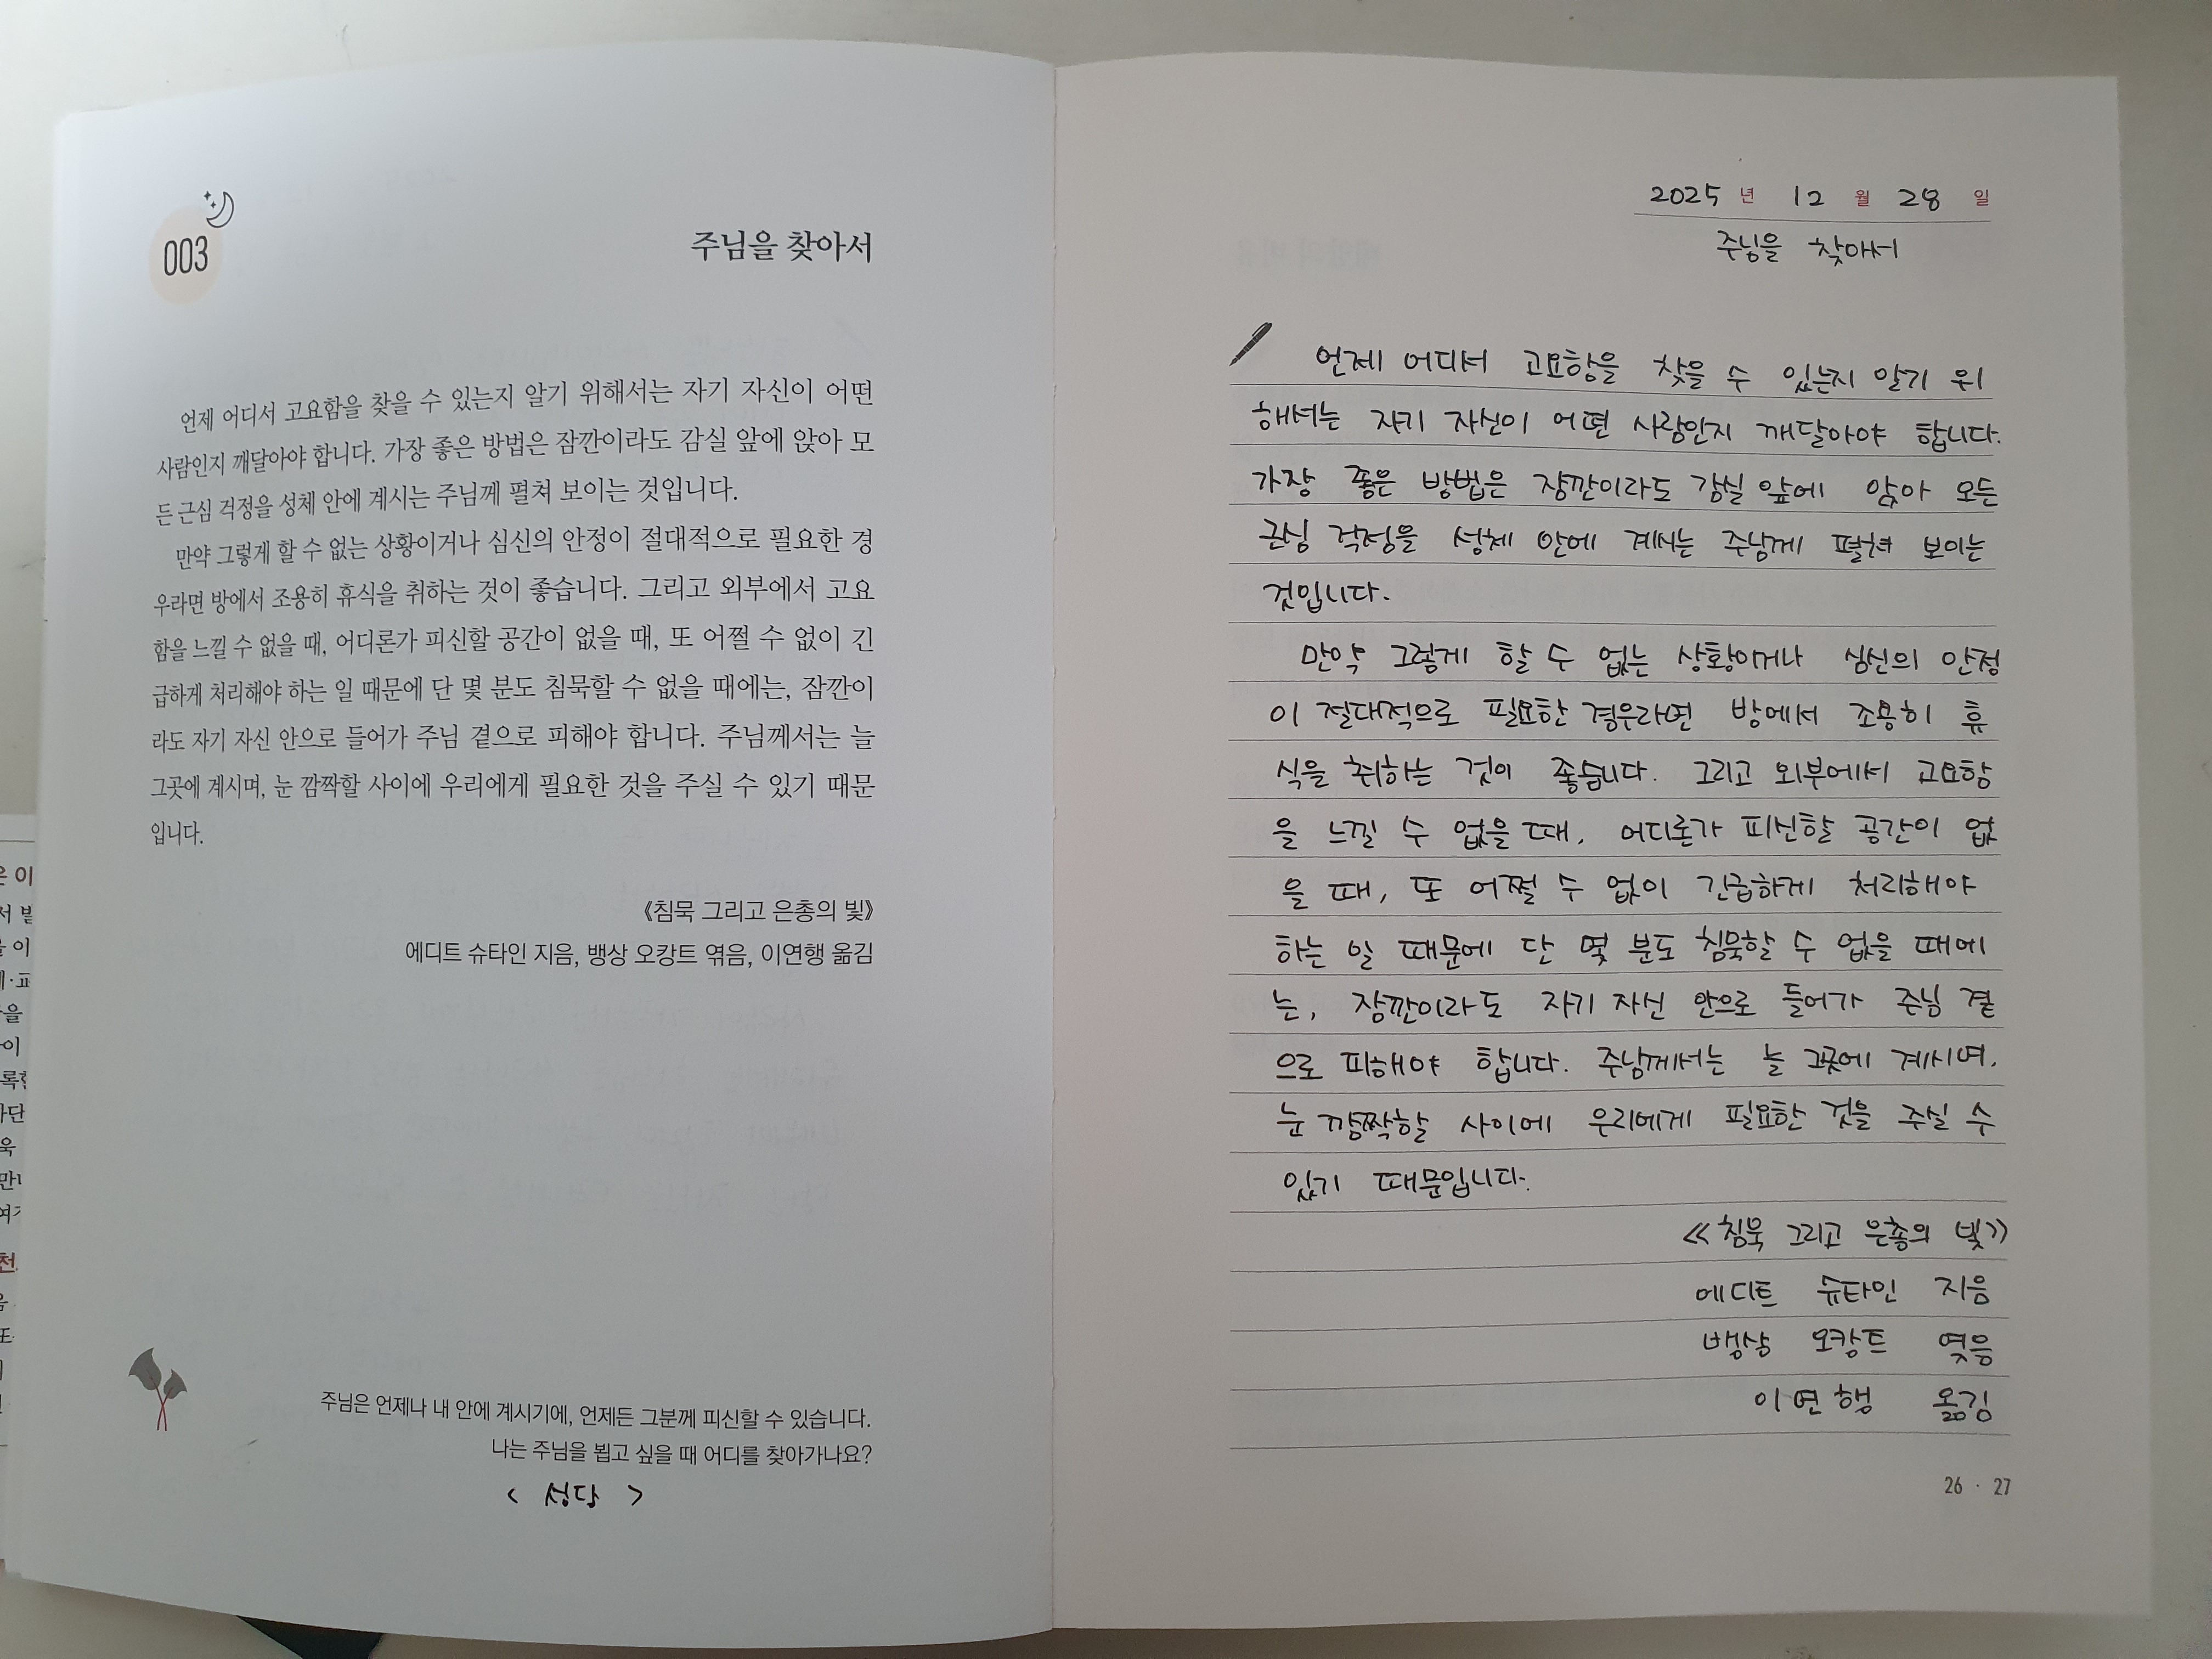 003
주님을 찾아서
언제 어디서 고요함을 찾을 수 있는지 알기 위해서는 자기 자신이 어떤
사람인지 깨달아야 합니다. 가장 좋은 방법은 잠깐이라도 감실 앞에 앉아 모
든 근심 걱정을 성체 안에 계시는 주님께 펼쳐 보이는 것입니다.
만약 그렇게 할 수 없는 상황이거나 심신의 안정이 절대적으로 필요한 경
우라면 방에서 조용히 휴식을 취하는 것이 좋습니다. 그리고 외부에서 고요
함을 느낄 수 없을 때, 어디론가 피신할 공간이 없을 때, 또 어쩔 수 없이 긴
급하게 처리해야 하는 일 때문에 단 몇 분도 침묵할 수 없을 때에는, 잠깐이
라도 자기 자신 안으로 들어가 주님 곁으로 피해야 합니다. 주님께서는 늘
그곳에 계시며, 눈 깜짝할 사이에 우리에게 필요한 것을 주실 수 있기 때문
입니다.
《침묵 그리고 은총의 빛》
에디트 슈타인 지음, 뱅상 오캉트 엮음, 이연행 옮김
주님은 언제나 내 안에 계시기에, 언제든 그분께 피신할 수 있습니다.
나는 주님을 뵙고 싶을 때 어디를 찾아가나요?
< 성당 >
2025 년 12 월 28 일
주님을 찾아서
언제 어디서 고요함을 찾을 수 있는지 알기 위
해서는 자기 자신이 어떤 사람인지 깨달아야 합니다.
가장 좋은 방법은 잠깐이라도 감실 앞에 앉아 모든
근심 걱정을 성체 안에 계시는 주님께 펼쳐 보이는
것입니다.
만약 그렇게 할 수 없는 상황이거나 심신의 안정
이 절대적으로 필요한 경우라면 방에서 조용히 휴
식을 취하는 것이 좋습니다. 그리고 외부에서 고요함
을 느낄 수 없을 때, 어디론가 피신할 공간이 없
을 때, 또 어쩔 수 없이 긴급하게 처리해야
하는 일 때문에 단 몇 분도 침묵할 수 없을 때에
는, 잠깐이라도 자기 자신 안으로 들어가 주님 곁
으로 피해야 합니다. 주님께서는 늘 그곳에 계시며,
눈 깜짝할 사이에 우리에게 필요한 것을 주실 수
있기 때문입니다.
《침묵 그리고 은총의 빛》
에디트 슈타인 지음
뱅상 오캉트 엮음
이연행 옮김
26 · 27